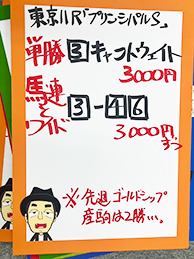 東京11R「プリンシパルS」
単勝 3 キャントウェイト
3000円
馬連とワイド 3-4 6
3000円ずつ
※先週ゴールドシップ
産駒は2勝!!